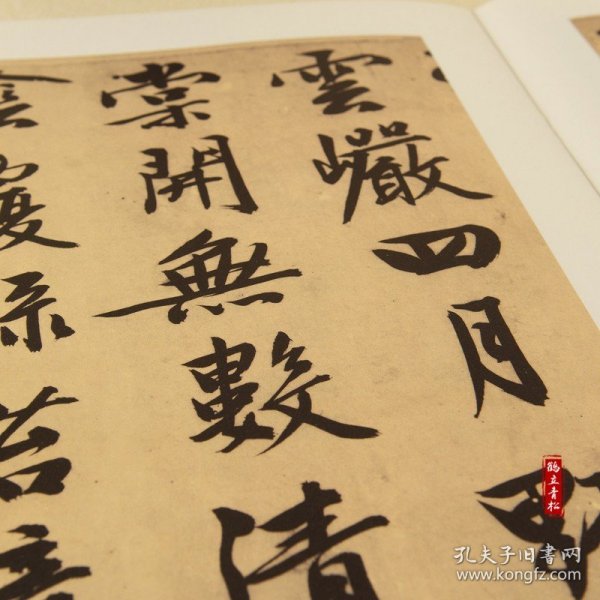 雲巗四月野
棠開無數清
陰覆苔
鶴立青松
孔夫子旧书网
www.kongfz.com